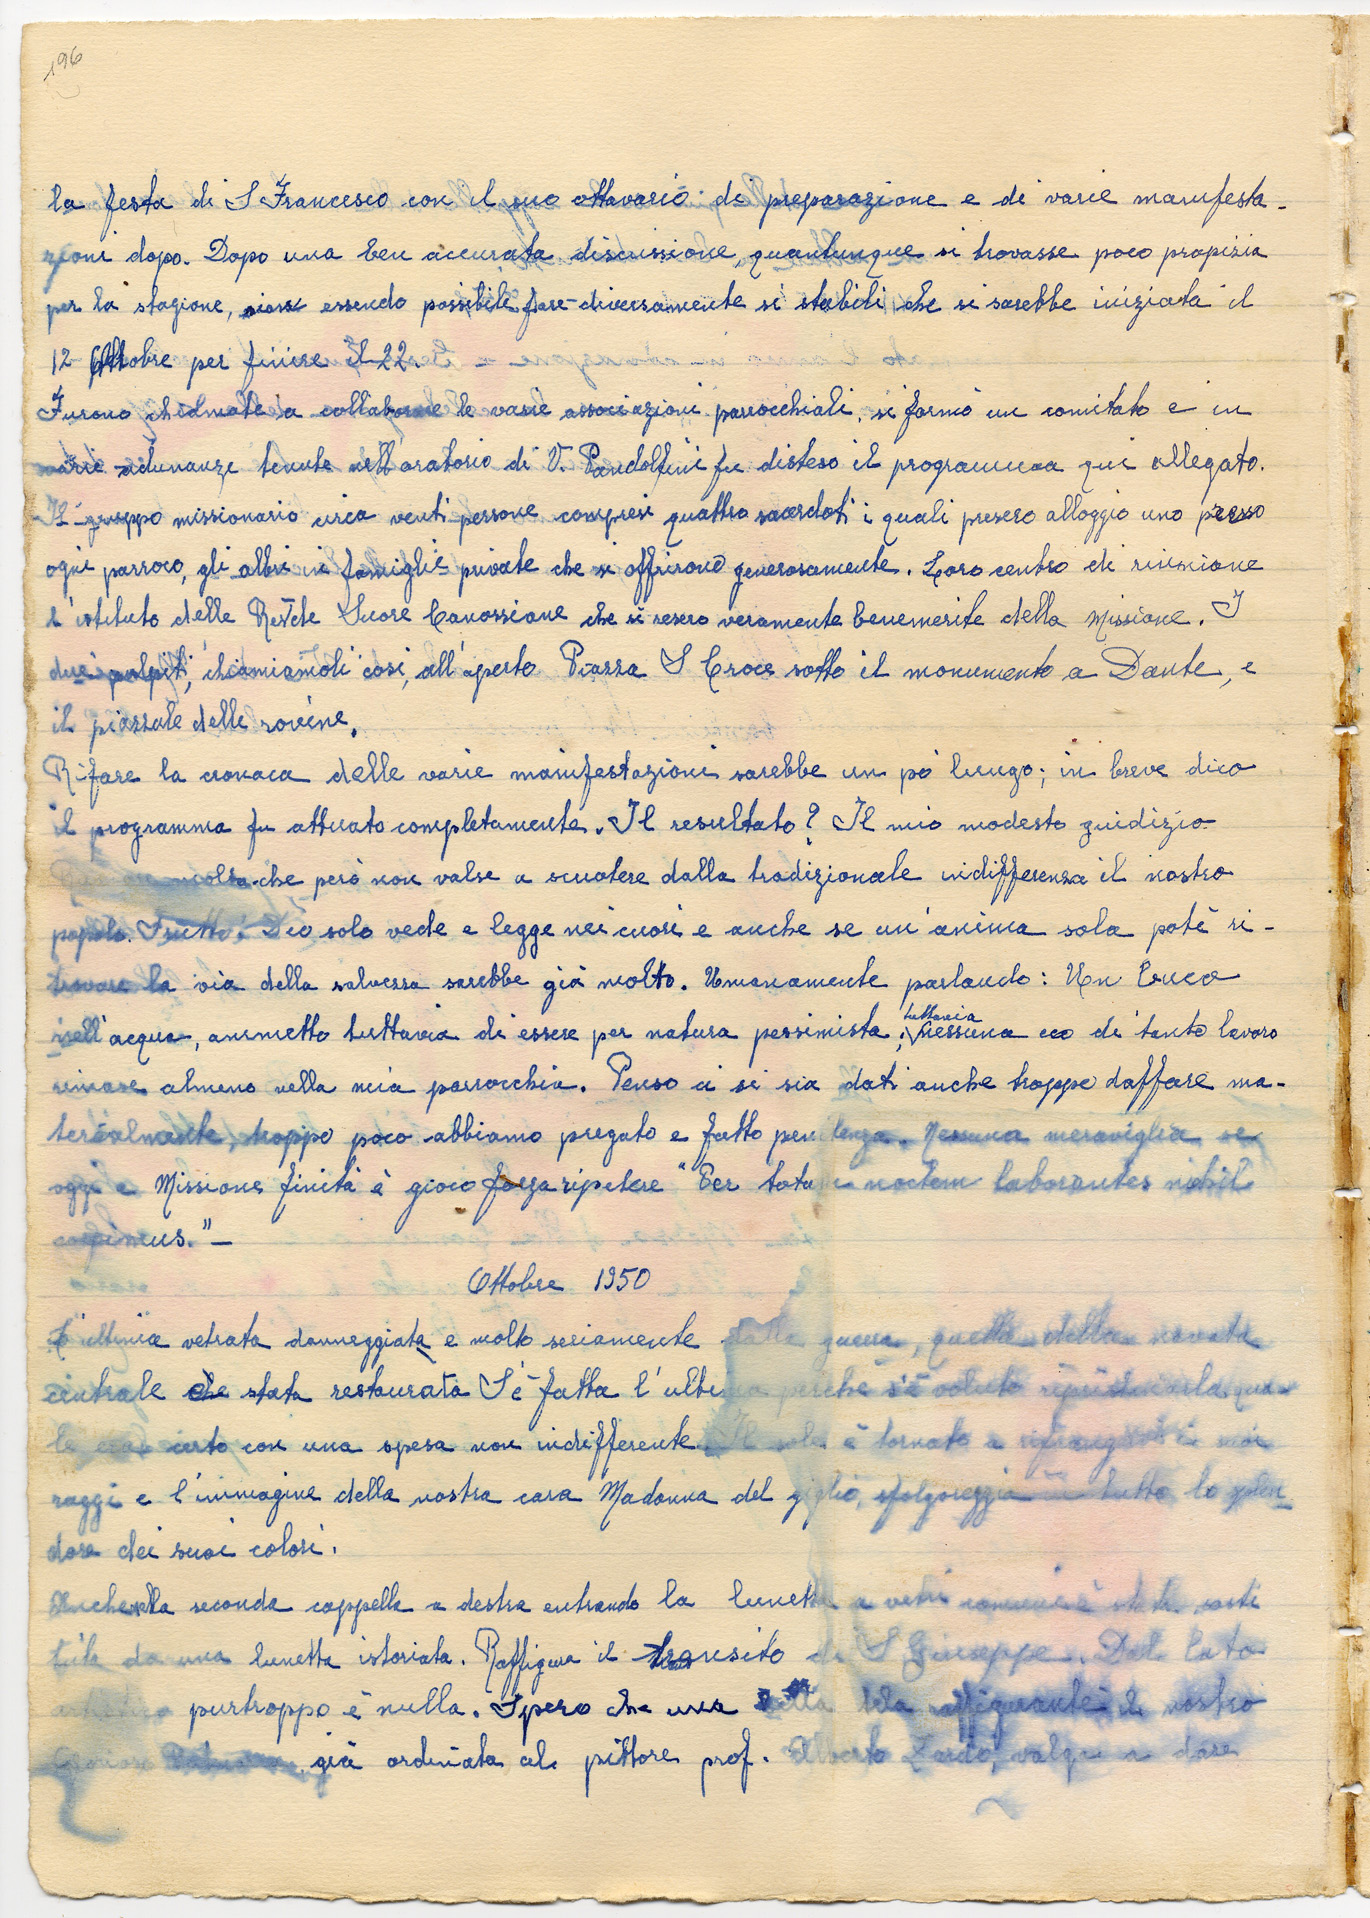 196
la festa di S Francesco con il suo ottavario di preparazione e di varie manifesta-
zioni dopo. Dopo una ben accurata discussione, quantunque si trovasse poco propizia
per la stagione, non essendo possibile fare diversamente si stabilì che si sarebbe iniziata il
12 Ottobre per finire il 22.
Furono chiamate a collaborare le varie associazioni parrocchiali, si formò un comitato e in
varie adunanze tenute nell'oratorio di V. Pandolfini fu disteso il programma qui allegato.
Il gruppo missionario circa venti persone compresi quattro sacerdoti i quali presero alloggio uno presso
ogni parroco, gli altri in famiglie private che si offrirono generosamente. Loro centro di riunione
l'istituto delle Rev.de Suore Canossiane che si resero veramente benemerite della Missione. I
due pulpiti, chiamiamoli così, all'aperto Piazza S Croce sotto il monumento a Dante, e
il piazzale delle rovine.
Rifare la cronaca delle varie manifestazioni sarebbe un pò lungo; in breve dico
il programma fu attuato completamente. Il resultato? Il mio modesto guidizio
che però non valse a scuotere dalla tradizionale indifferenza il nostro
popolo. Frutto? Dio solo vede e legge nei cuori e anche se un'anima sola potè ri-
trovare la via della salvezza sarebbe già molto. Umanamente parlando: Un buco
nell'acqua, ammetto tuttavia di essere per natura pessimista; tuttavia nessuna eco di tanto lavoro
rimase almeno nella mia parrocchia. Penso ci si sia dati anche troppo daffare ma-
terialmente, troppo poco abbiamo pregato e fatto penitenza. Nessuna meraviglia se
oggi a Missione finita è gioco forza ripetere "Per totam noctem laborantes nihil
coepimus." -
Ottobre 1950
L'ultima vetrata danneggiata e molto seriamente dalla guerra, quella della navata
centrale è stata restaurata S'è fatta l'ultima perchè s'è voluto ripristinarla qua-
le era certo con una spesa non indifferente. Il sole è tornato a rifrangervi i suoi
raggi e l'immagine della nostra cara Madonna del giglio, sfolgoreggia in tutto lo splen-
dore dei suoi colori.
Anche nella seconda cappella a destra entrando la lunetta a vetri comuni è stata sosti
tuita da una lunetta istoriata. Raffigura il transito di S Giuseppe. Dal lato
artistico purtroppo è nulla. Spero che una bella tela raffigurante il nostro
già ordinata al pittore prof. Alberto Zardo, valga a dare